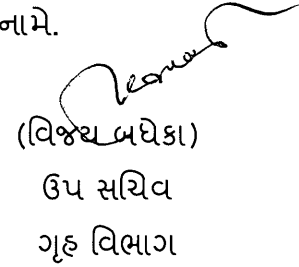 નામે.
(વિજય બધેકા)
ઉપ સચિવ
ગૃહ વિભાગ